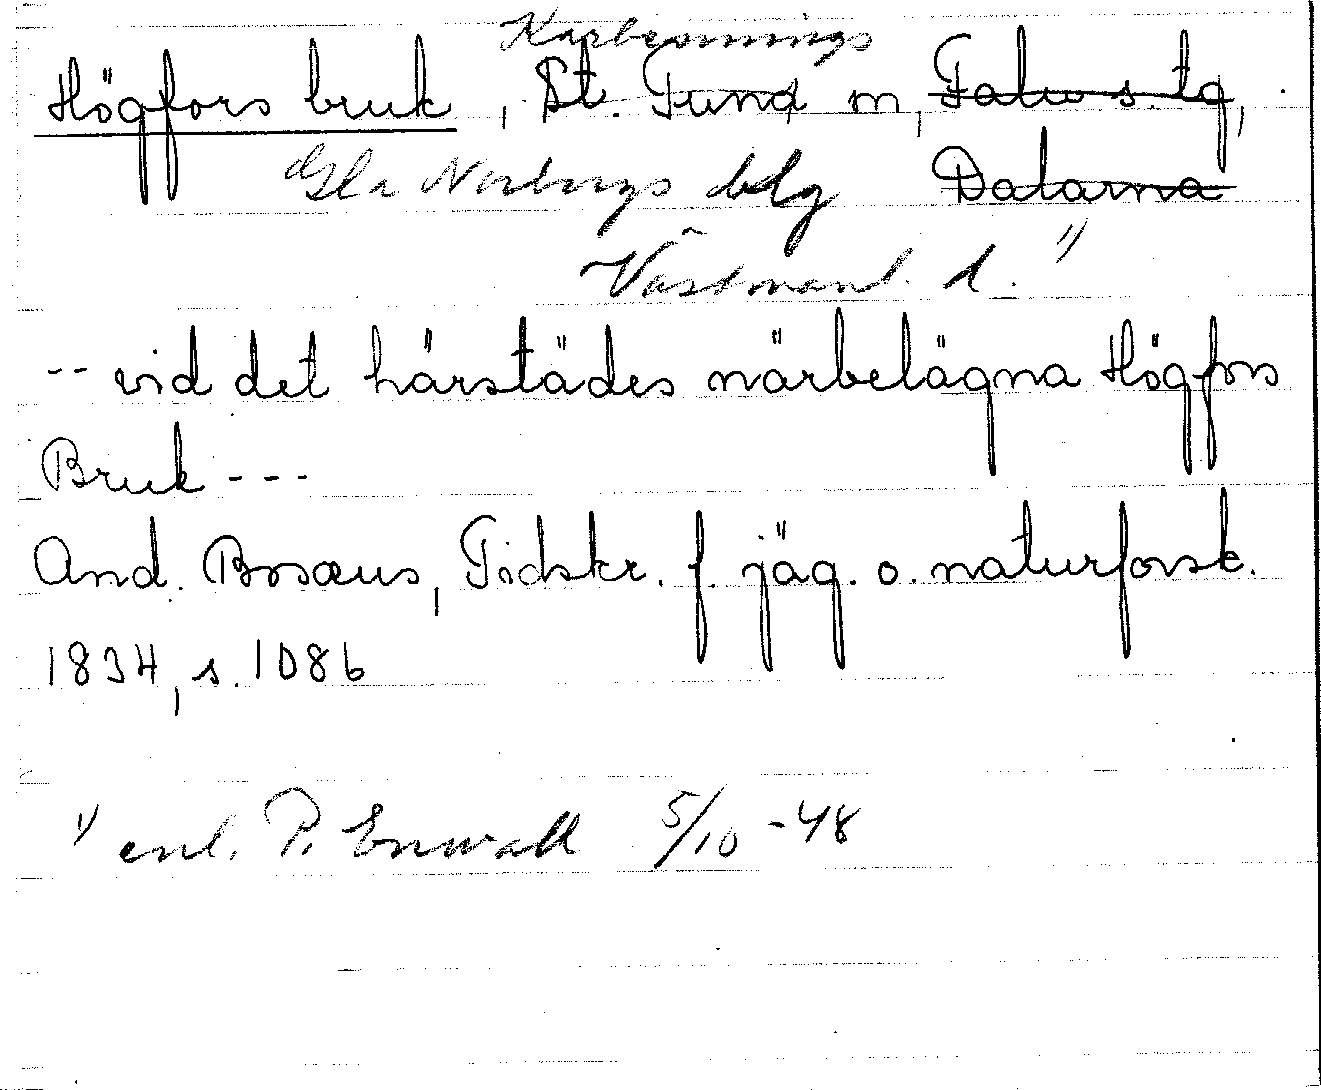 Karbennings
Högfors bruk, St. Tuna m, Falu s. tg,
Gla Norbergs blg Dalarna
Västmanl. d. 1)
-- vid det härstädes närbelägna Högfors
Bruk ---
And. Bosæus, Tidskr. f. jäg. o. naturforsk.
1834, s. 1086
1) enl. P. Enwall 5/10 -48